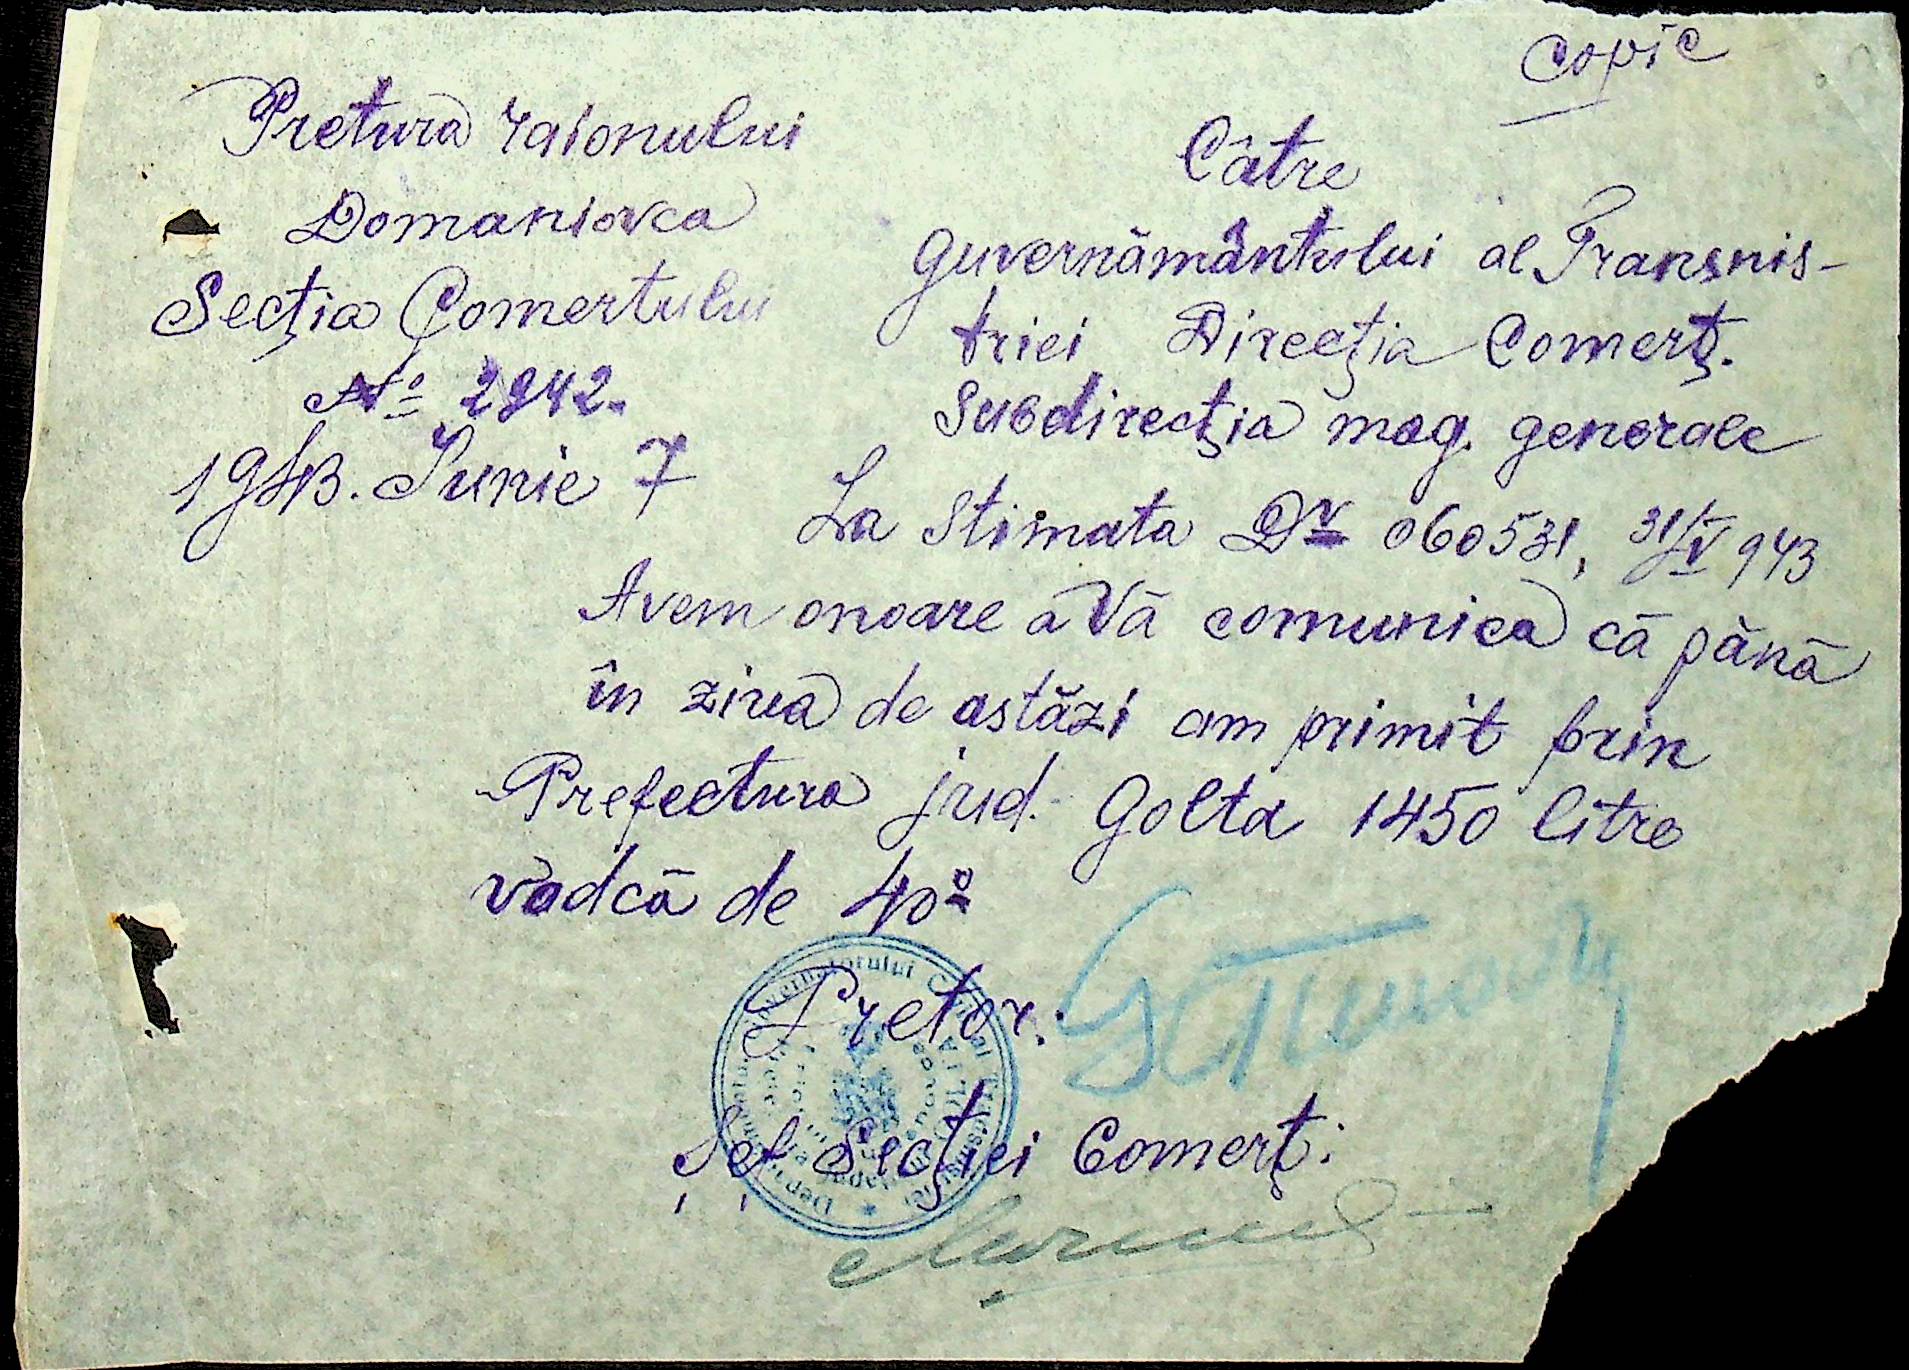 Copie
Pretura raionului
Domaniovca
Secţia Comertului
№ 2942.
1943. Iunie 7
Câtre
Guvernământului al Transnis-
triei Direcţia Comerţ.
Subdirecţia mag. generale
La stimata Dv 060531, 31/V 943
Avem onoare a Vă comunica că pănă
în ziua de astăzi am primit prin
Prefectura jud. Golta 1450 litre
vodcă de 40º
Pretor:
Şef Secţiei Comerţ: